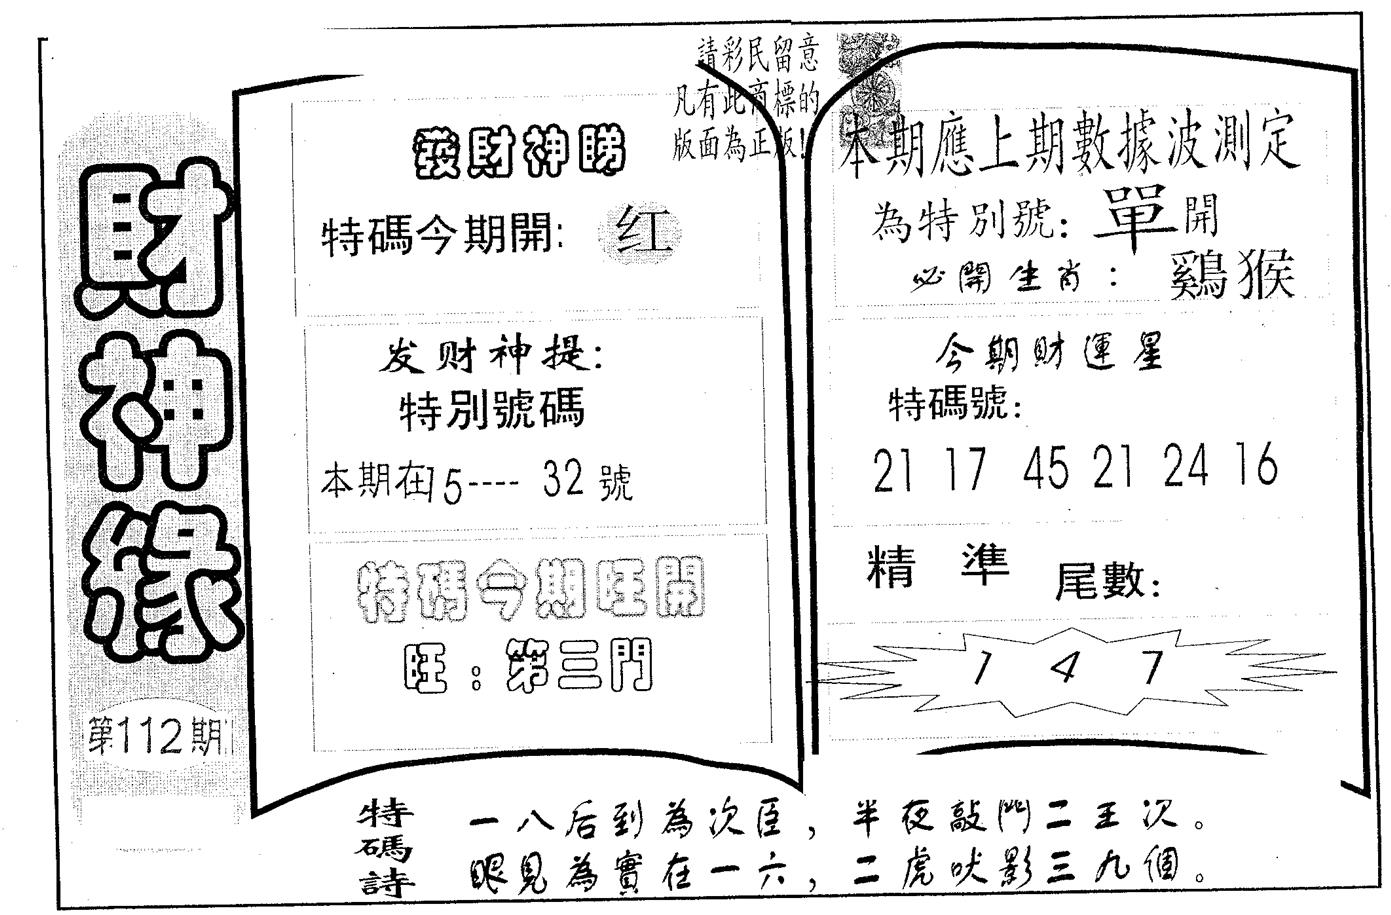 財神緣
第112期
請彩民留意
凡有此商標的
版面為正版!
發財神睇
特碼今期開: 红
发财神提:
特別號碼
本期在15---- 32 號
特碼今期旺開
旺:第三門
本期應上期數據波測定
為特別號: 單開
必開生肖: 鷄猴
今期財運星
特碼號:
21 17 45 21 24 16
精 準 尾數:
1 4 7
特碼詩
一八后到為次臣,半夜敲門二王次。
眼見為實在一六,二虎吠影三九個。